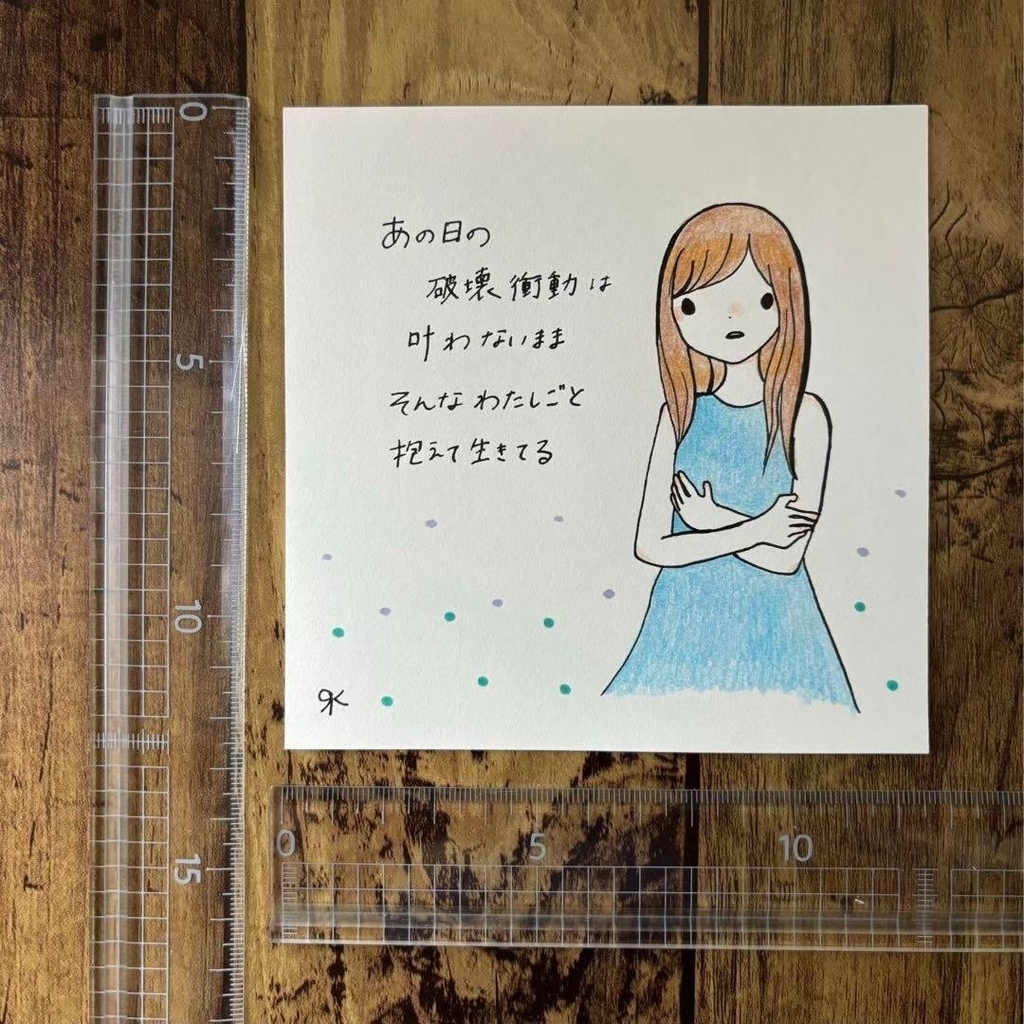 あの日の
破壊衝動は
叶わないまま
そんなわたしごと
抱えて生きてる
0
5
10
15
0
5
10